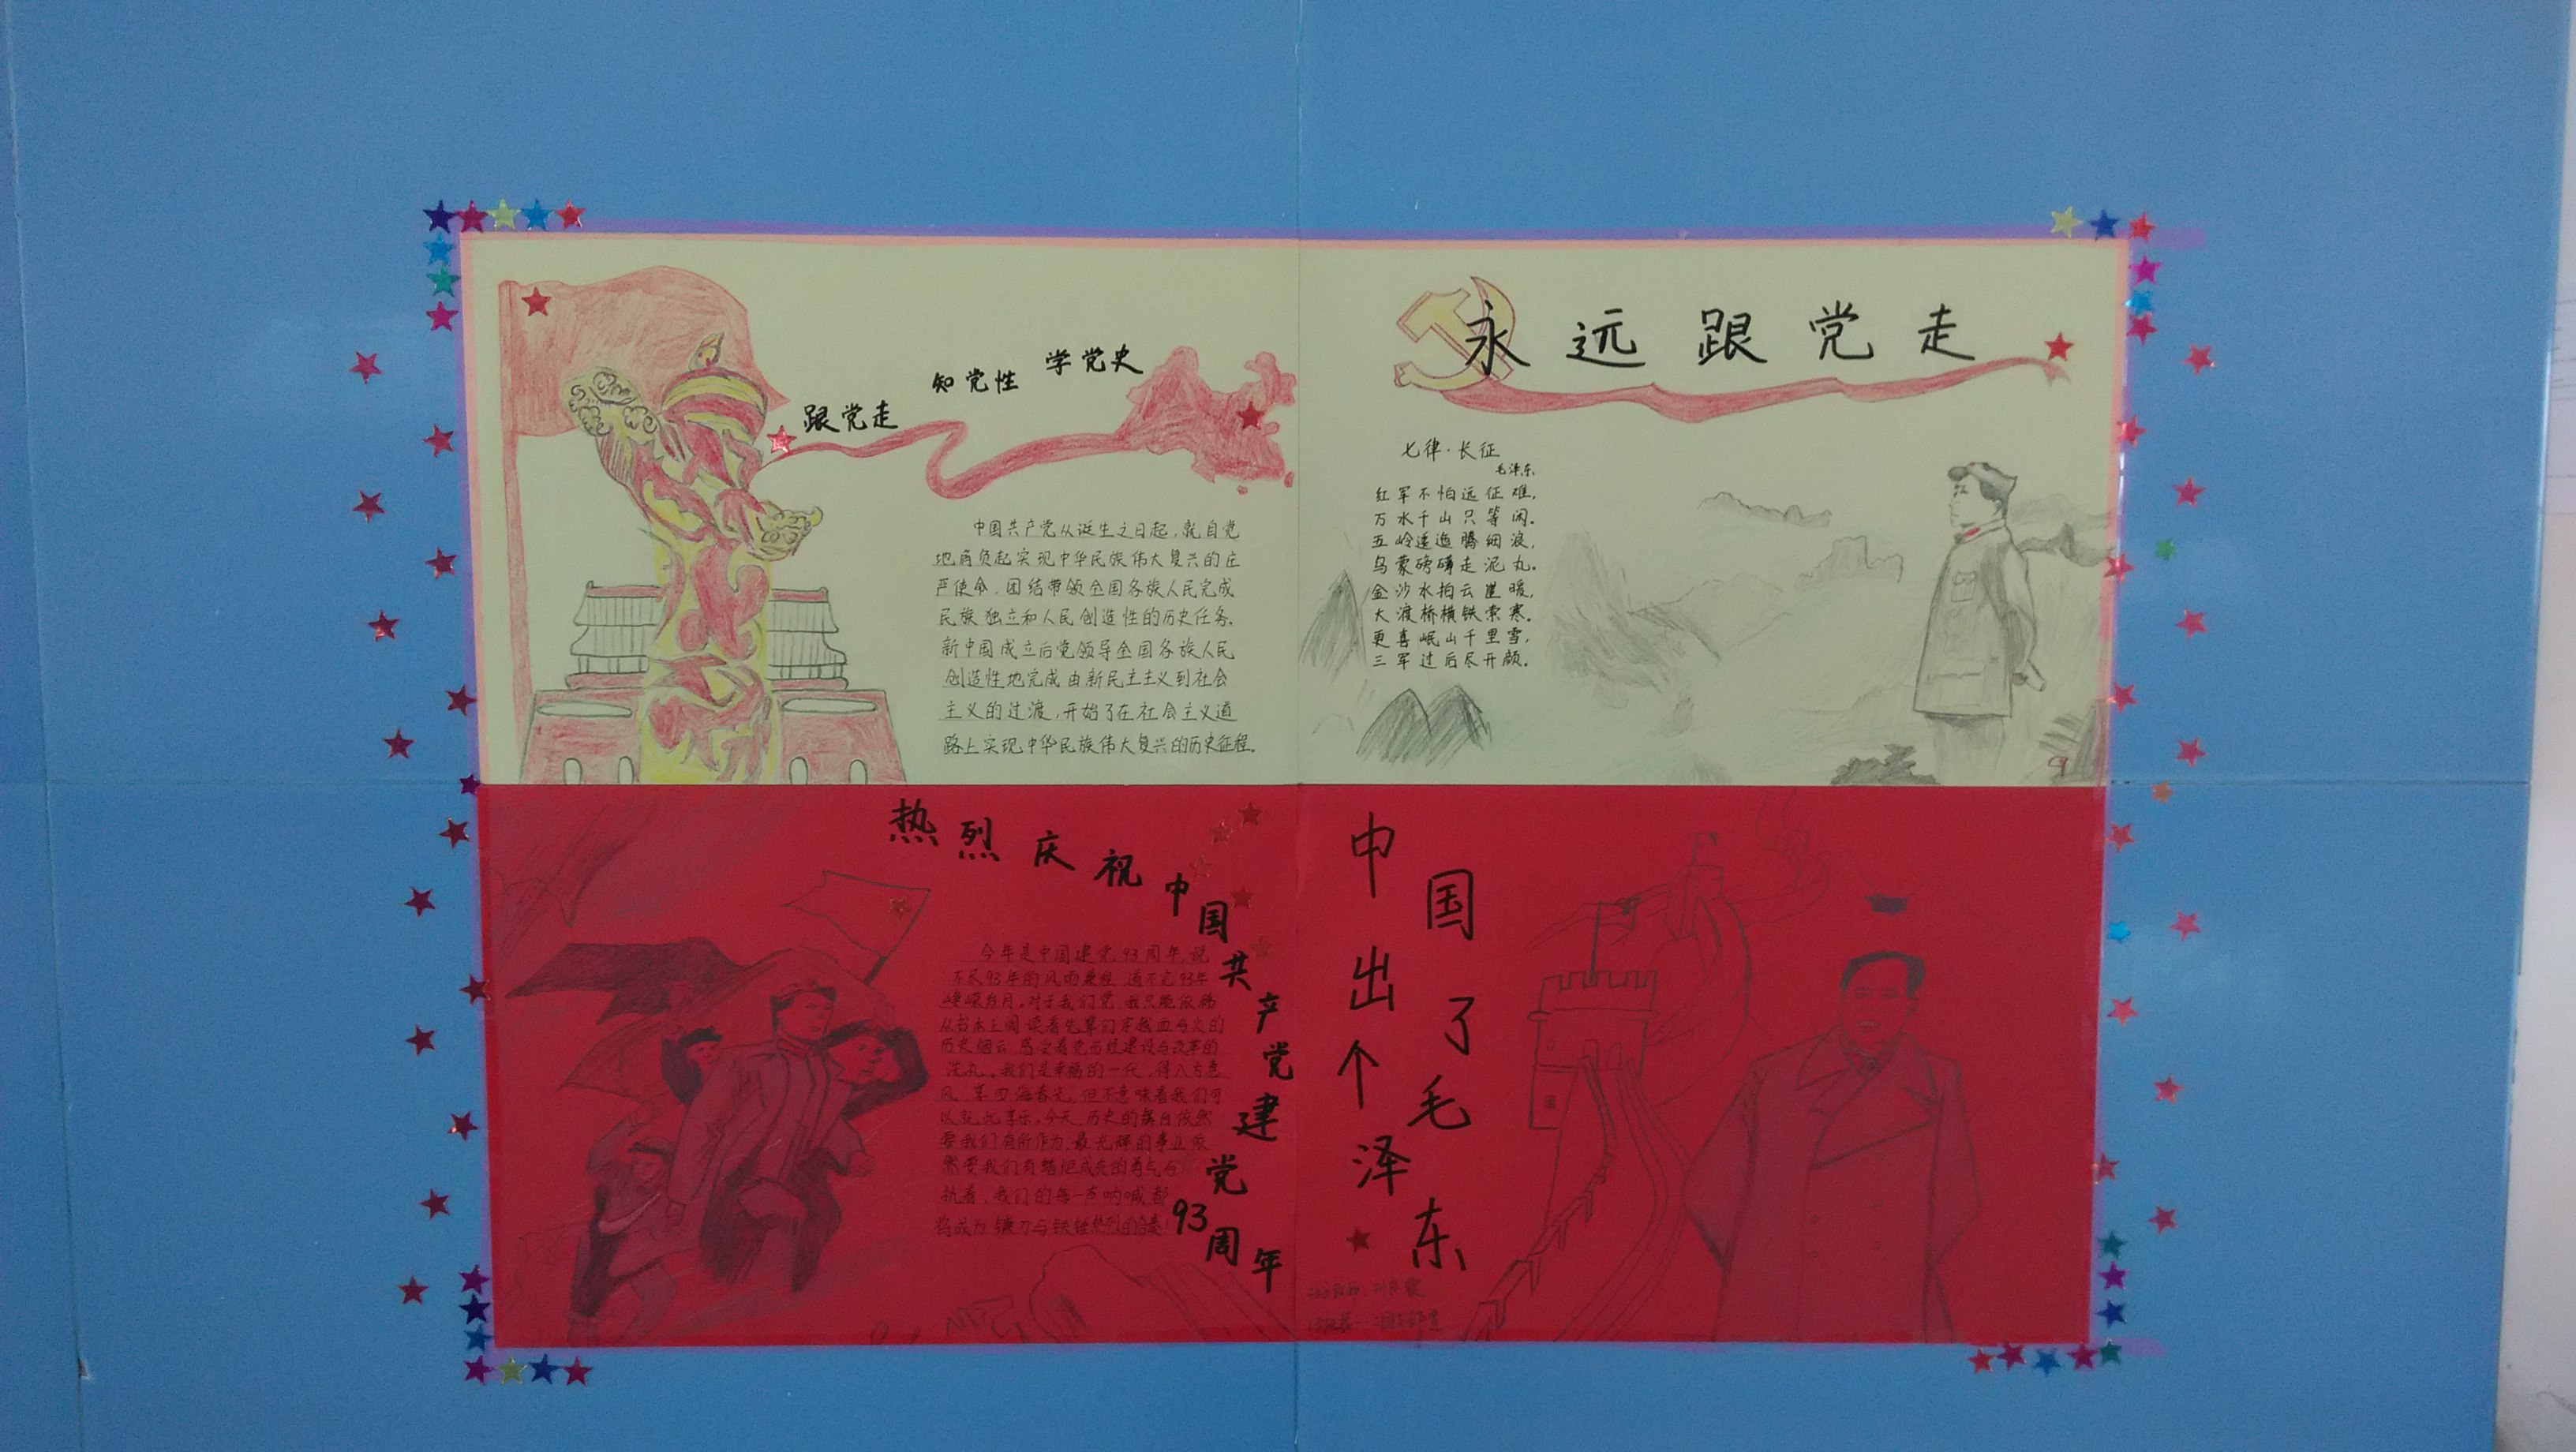 跟党走 知党性 学党史
中国共产党从诞生之日起，就自觉
地肩负起实现中华民族伟大复兴的庄
严使命，团结带领全国各族人民完成
民族独立和人民创造性的历史任务。
新中国成立后党领导全国各族人民
创造性地完成由新民主主义到社会
主义的过渡，开始了在社会主义道
路上实现中华民族伟大复兴的历史征程。
永远跟党走
七律·长征
毛泽东
红军不怕远征难，
万水千山只等闲。
五岭逶迤腾细浪，
乌蒙磅礴走泥丸。
金沙水拍云崖暖，
大渡桥横铁索寒。
更喜岷山千里雪，
三军过后尽开颜。
热烈庆祝中国共产党建党93周年
今年是中国建党93周年，说
不尽93年的风雨兼程，道不完93年
峥嵘岁月。对于我们党，我只能依稀
从书本上阅读着先辈们穿越血与火的
历史烟云，感受着党历经建设与改革的
洗礼。我们是幸福的一代，得八方惠
风，享四海春光，但不意味着我们可
以就此享乐。今天，历史的舞台依然
要我们有所作为，最光辉的事业依
然要我们有蜡炬成灰的勇气与
执着，我们的每一声呐喊都
将成为镰刀与铁锤热烈的合奏！
中国出了个毛泽东